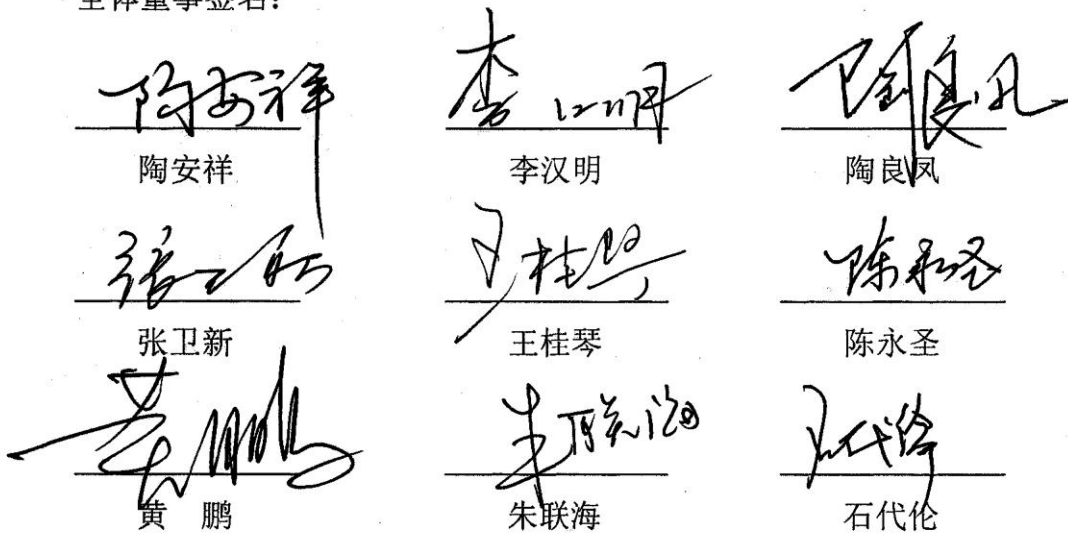 全体董事签名：
陶安祥 李汉明 陶良凤
陶安祥 李汉明 陶良凤
张卫新 王桂琴 陈永圣
张卫新 王桂琴 陈永圣
黄鹏 朱联海 石代伦
黄 鹏 朱联海 石代伦